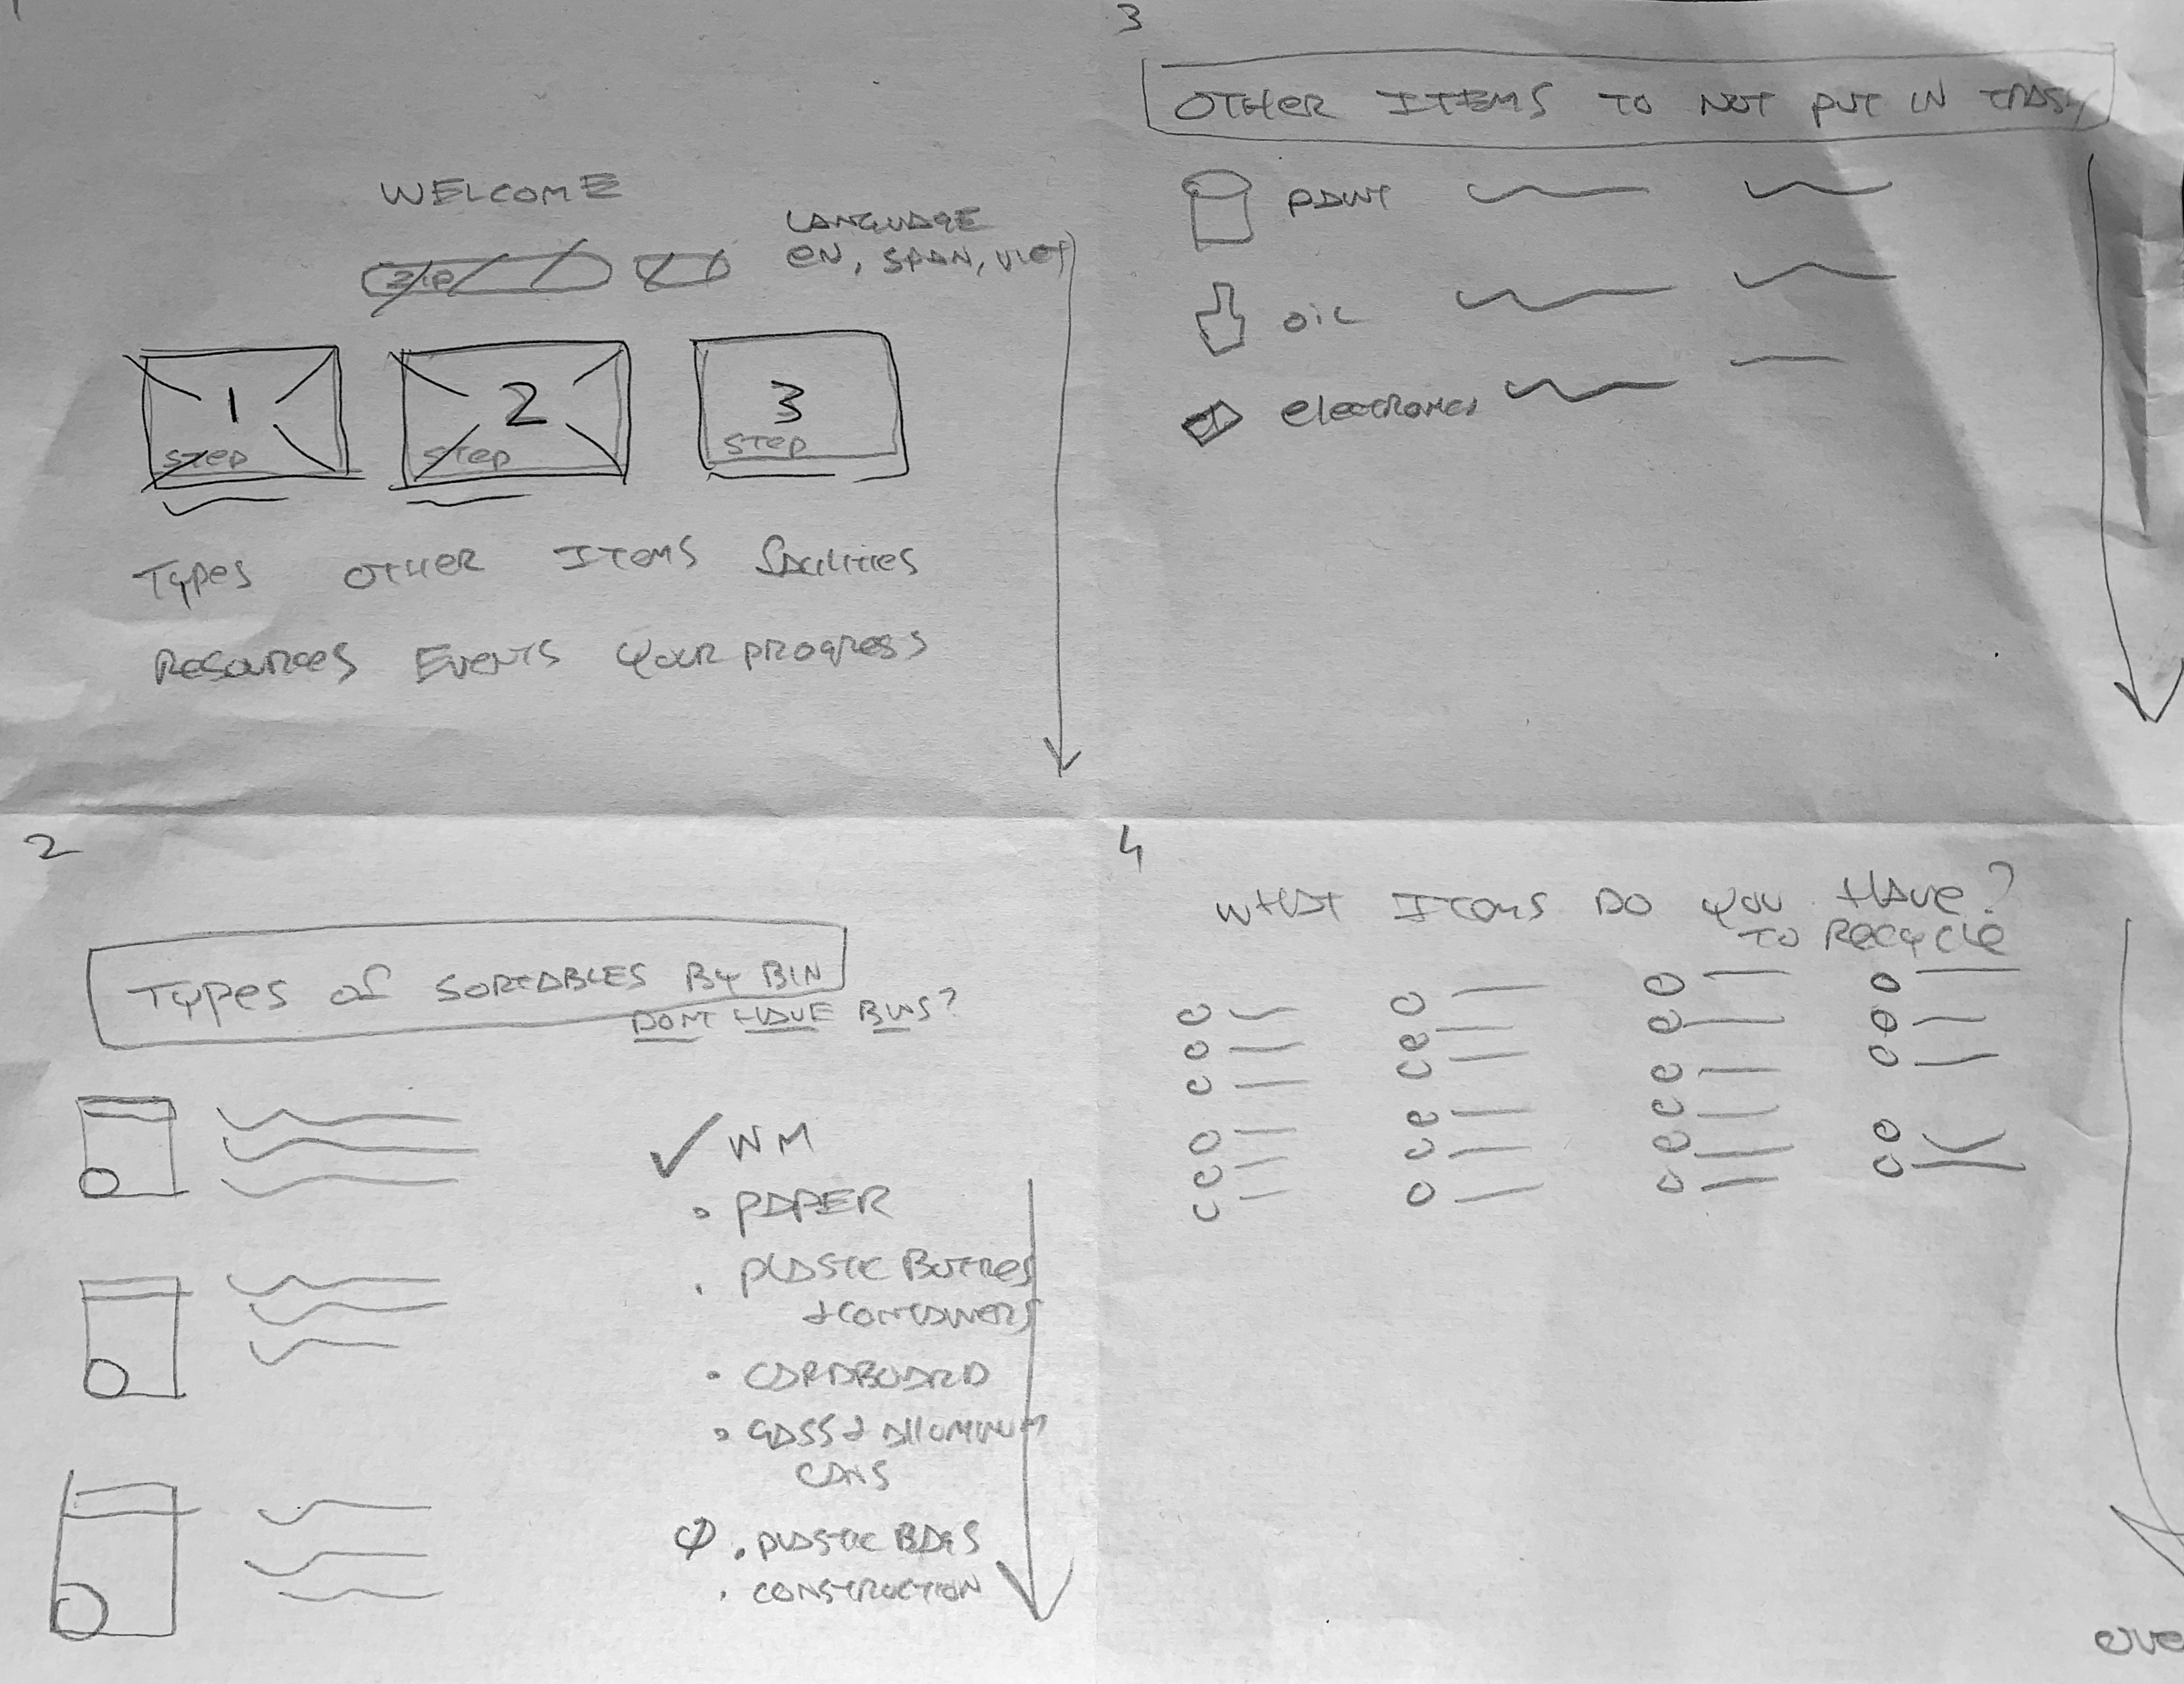 1
WELCOME
LANGUAGE
EN, SPAN, VIET
ZIP
1
STEP
2
STEP
3
STEP
Types OTHER ITEMS facilities
Resources EVENTS Your progress
2
Types of SORTABLES BY BIN
DONT HAVE BINS?
✓ WM
• PAPER
• PLASTIC BOTTLES
+ CONTAINERS
• CARDBOARD
• GASS + ALLUMINUM
CANS
• PLASTIC BAGS
• CONSTRUCTION
3
OTHER ITEMS TO NOT PUT IN TRASH
PAINT
OIL
electronics
4
WHAT ITEMS DO YOU HAVE?
TO RECYCLE
ove